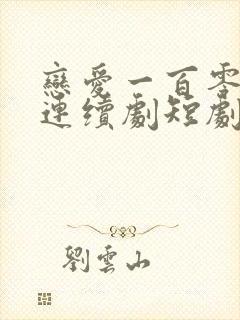 戀愛一百零
連續劇短劇
劉雲山